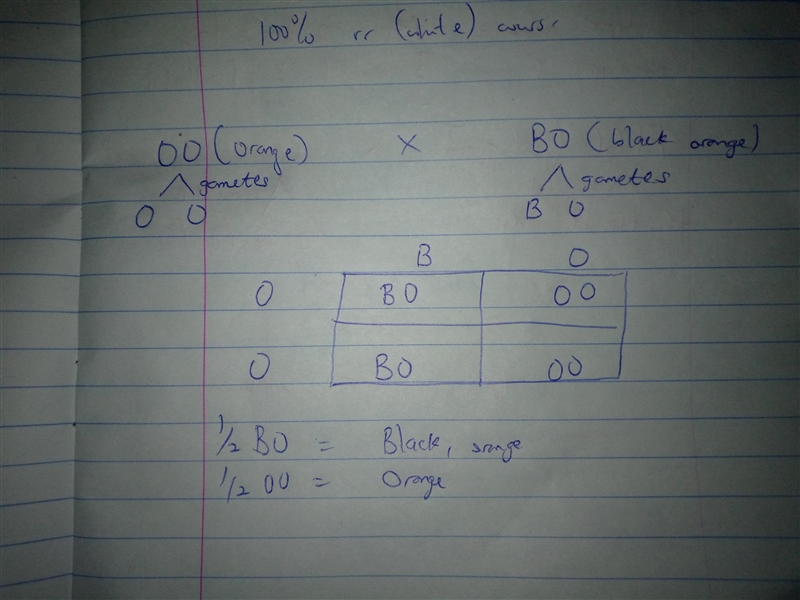 100% rr (white) cows.
OO (orange) X BO (black orange)
gametes gametes
O O B O
B O
O BO OO
O BO OO
1/2 BO = Black, orange
1/2 OO = Orange